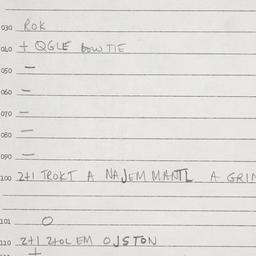 030 ROK
040 + QGLE BOWTIE
050 —
060 —
070 —
080 —
090 —
100 2+1 TROKT A NAJEM MANTL A GRIM
101 O
110 2+1 2+OL EM OJSTON
+